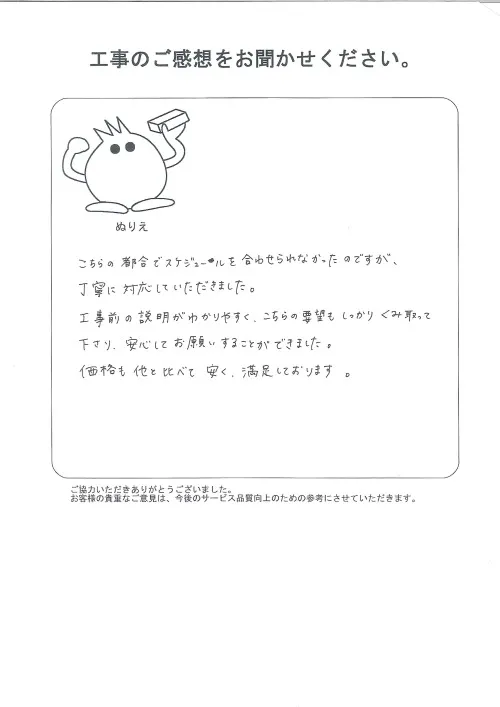 工事のご感想をお聞かせください。
ぬりえ
こちらの都合でスケジュールを合わせられなかったのですが、
丁寧に対応していただきました。
工事前の説明がわかりやすく、こちらの要望もしっかりくみ取って
下さり、安心してお願いすることができました。
価格も他と比べて安く、満足しております。
ご協力いただきありがとうございました。
お客様の貴重なご意見は、今後のサービス品質向上のための参考にさせていただきます。